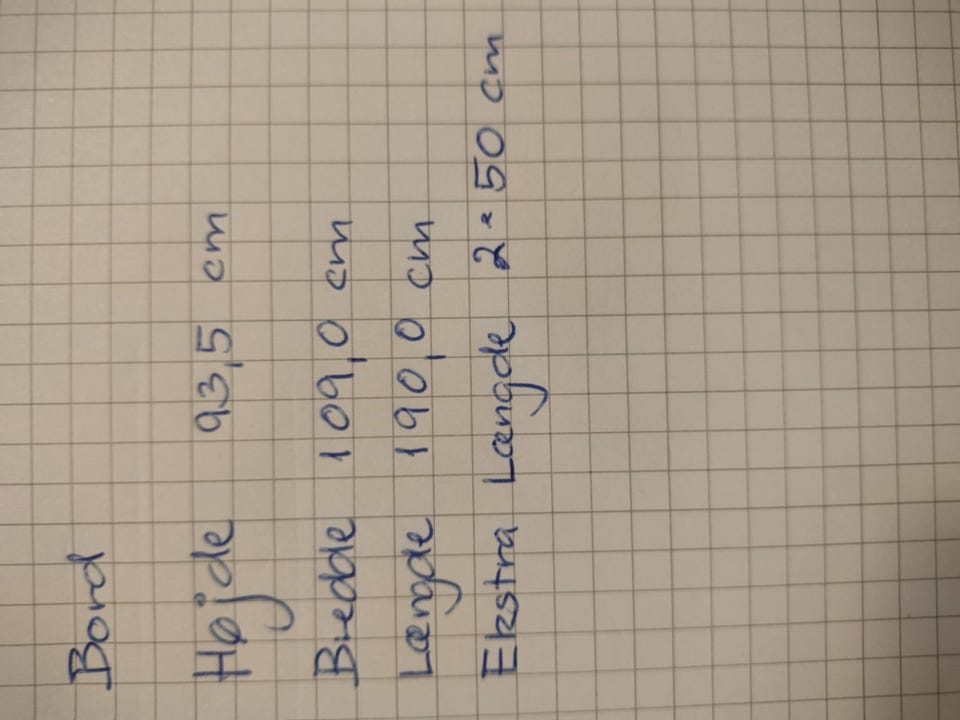 Bord
Højde 93,5 cm
Bredde 109,0 cm
Længde 190,0 cm
Ekstra Længde 2×50 cm